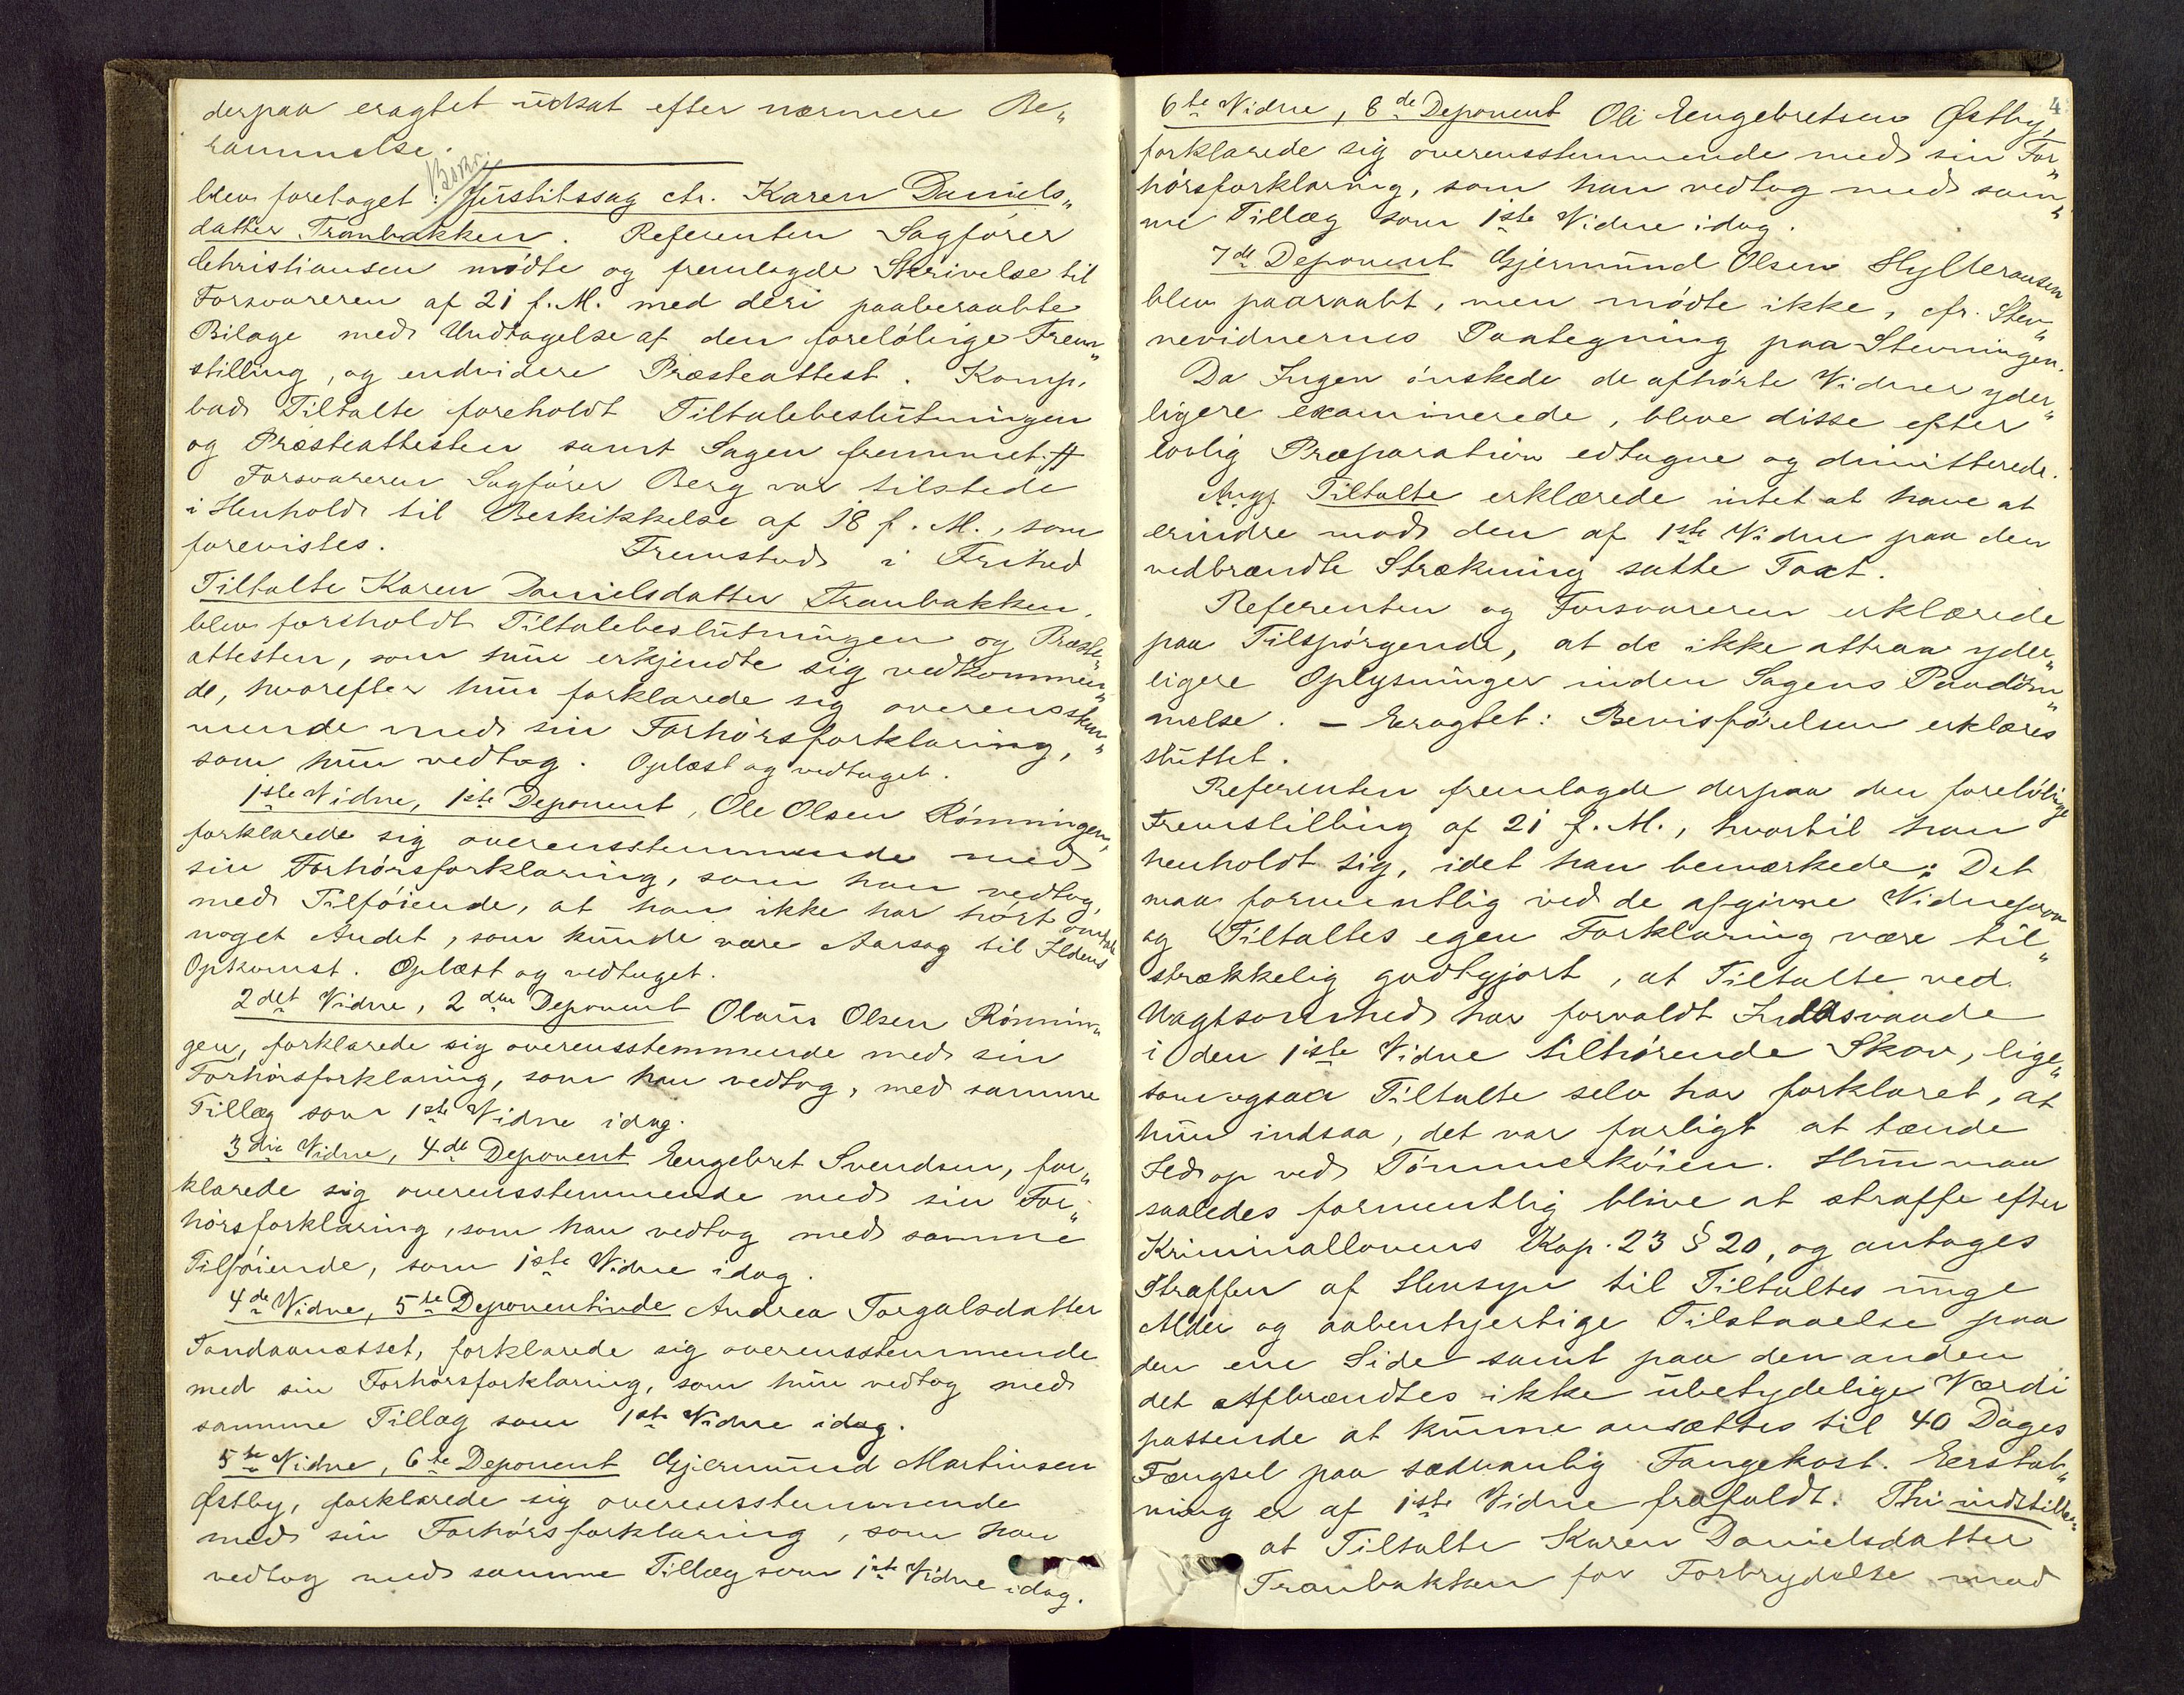 derpaa eragtet udsat efter nærmere Be„
rammelse.
blev foretaget: Justitssag ctr. Karen Daniels„
datter Tranbakken. Referenten Sagfører
Christiansen mødte og fremlagde Skrivelse til
Forsvareren af 21 f. M. med deri paaberaabte
Bilage med Undtagelse af den foreløbige Frem„
stilling, og endvidere Præsteattest. Komp.
bad Tiltalte foreholdt Tiltalebeslutningen
og Præsteattesten samt Sagen fremmet.
Forsvareren Sagfører Berg var tilstede
i Henhold til Beskikkelse af 18 f. M., som
forevistes. Fremstod i Frihed
Tiltalte Karen Danielsdatter Tranbakken,
blev forsholdt Tiltalebeslutningen og Præste„
attesten, som hun erkjendte sig vedkommen„
de, hvorefter hun forklarede sig overensstem„
mende med sin Forhørsforklaring,
som hun vedtog. Oplæst og vedtaget.
1ste Vidne, 1ste Deponent, Ole Olsen Rønningen,
forklarede sig overensstemmende med
sin Forhørsforklaring, som han vedtog,
med Tilføiende, at han ikke har hørt omtale
noget Andet, som kunde være Aarsag til Ildens
Opkomst. Oplæst og vedtaget.
2det Vidne, 2den Deponent Olaus Olsen Rønnin„
gen, forklarede sig overensstemmende med sin
Forhørsforklaring, som han vedtog, med samme
Tillæg som 1ste Vidne idag.
3die Vidne, 4de Deponent Engebret Svendsen, for„
klarede sig overensstemmende med sin For„
hørsforklaring, som han vedtog med samme
Tilføiende, som 1ste Vidne idag.
4de Vidne, 5te Deponentinde Andrea Torgalsdatter
Tandaanæsset, forklarede sig overensstemmende
med sin Forhørsforklaring, som hun vedtog med
samme Tillæg som 1ste Vidne idag.
5te Vidne, 6te Deponent Gjermund Martinsen
Østby, forklarede sig overensstemmende
med sin Forhørsforklaring, som han
vedtog med samme Tillæg som 1ste Vidne idag.
4
6te Vidne, 8de Deponent Oli Engebretsen Østby,
forklarede sig overensstemmende med sin For„
hørsforklaring, som han vedtog med sam„
me Tillæg som 1ste Vidne idag.
7de Deponent Gjermund Olsen Hylleraasen
blev paaraabt, men mødte ikke, cfr. Stev„
nevidnernes Paategning paa Stevningen.
Da Ingen ønskede de afhørte Vidner yder„
ligere examinerede, bleve disse efter
lovlig Præparation edtagne og dimitterede.
Tiltalte erklærede intet at have at
erindre mod den af 1ste Vidne paa den
vedbrændte Strækning satte Taxt.
Referenten og Forsvareren erklærede
paa Tilspørgende, at de ikke attraa yder„
ligere Oplysninger inden Sagens Paadøm„
melse. – Eragtet: Bevisførelsen erklæres
sluttet.
Referenten fremlagde derpaa den foreløbige
Fremstilling af 21 f. M., hvortil han
henholdt sig, idet han bemærkede: Det
maa formentlig ved de afgivne Vidneprov
og Tiltaltes egen Forklaring være til„
strækkelig godtgjort, at Tiltalte ved
Uagtsomhed har forvoldt Ildsvaade
i den 1ste Vidne tilhørende Skov, lige„
som ogsaa Tiltalte selv har forklaret, at
hun indsaa, det var farligt at tænde
Ild op ved Tømmerkøien. Hun maa
saaledes formentlig blive at straffe efter
Kriminallovens Kap. 23 § 20, og antages
Straffen af Hensyn til Tiltaltes unge
Alder og aabenhjertige Tilstaaelse paa
den ene Side samt paa den anden
det Afbrændtes ikke ubetydelige Værdi
passende at kunne ansættes til 40 Dages
Fængsel paa sædvanlig Fangekost. Erstat„
ning er af 1ste Vidne frafaldt. Thi indstilles:
at Tiltalte Karen Danielsdatter
Tranbakken for Forbrydelse mod